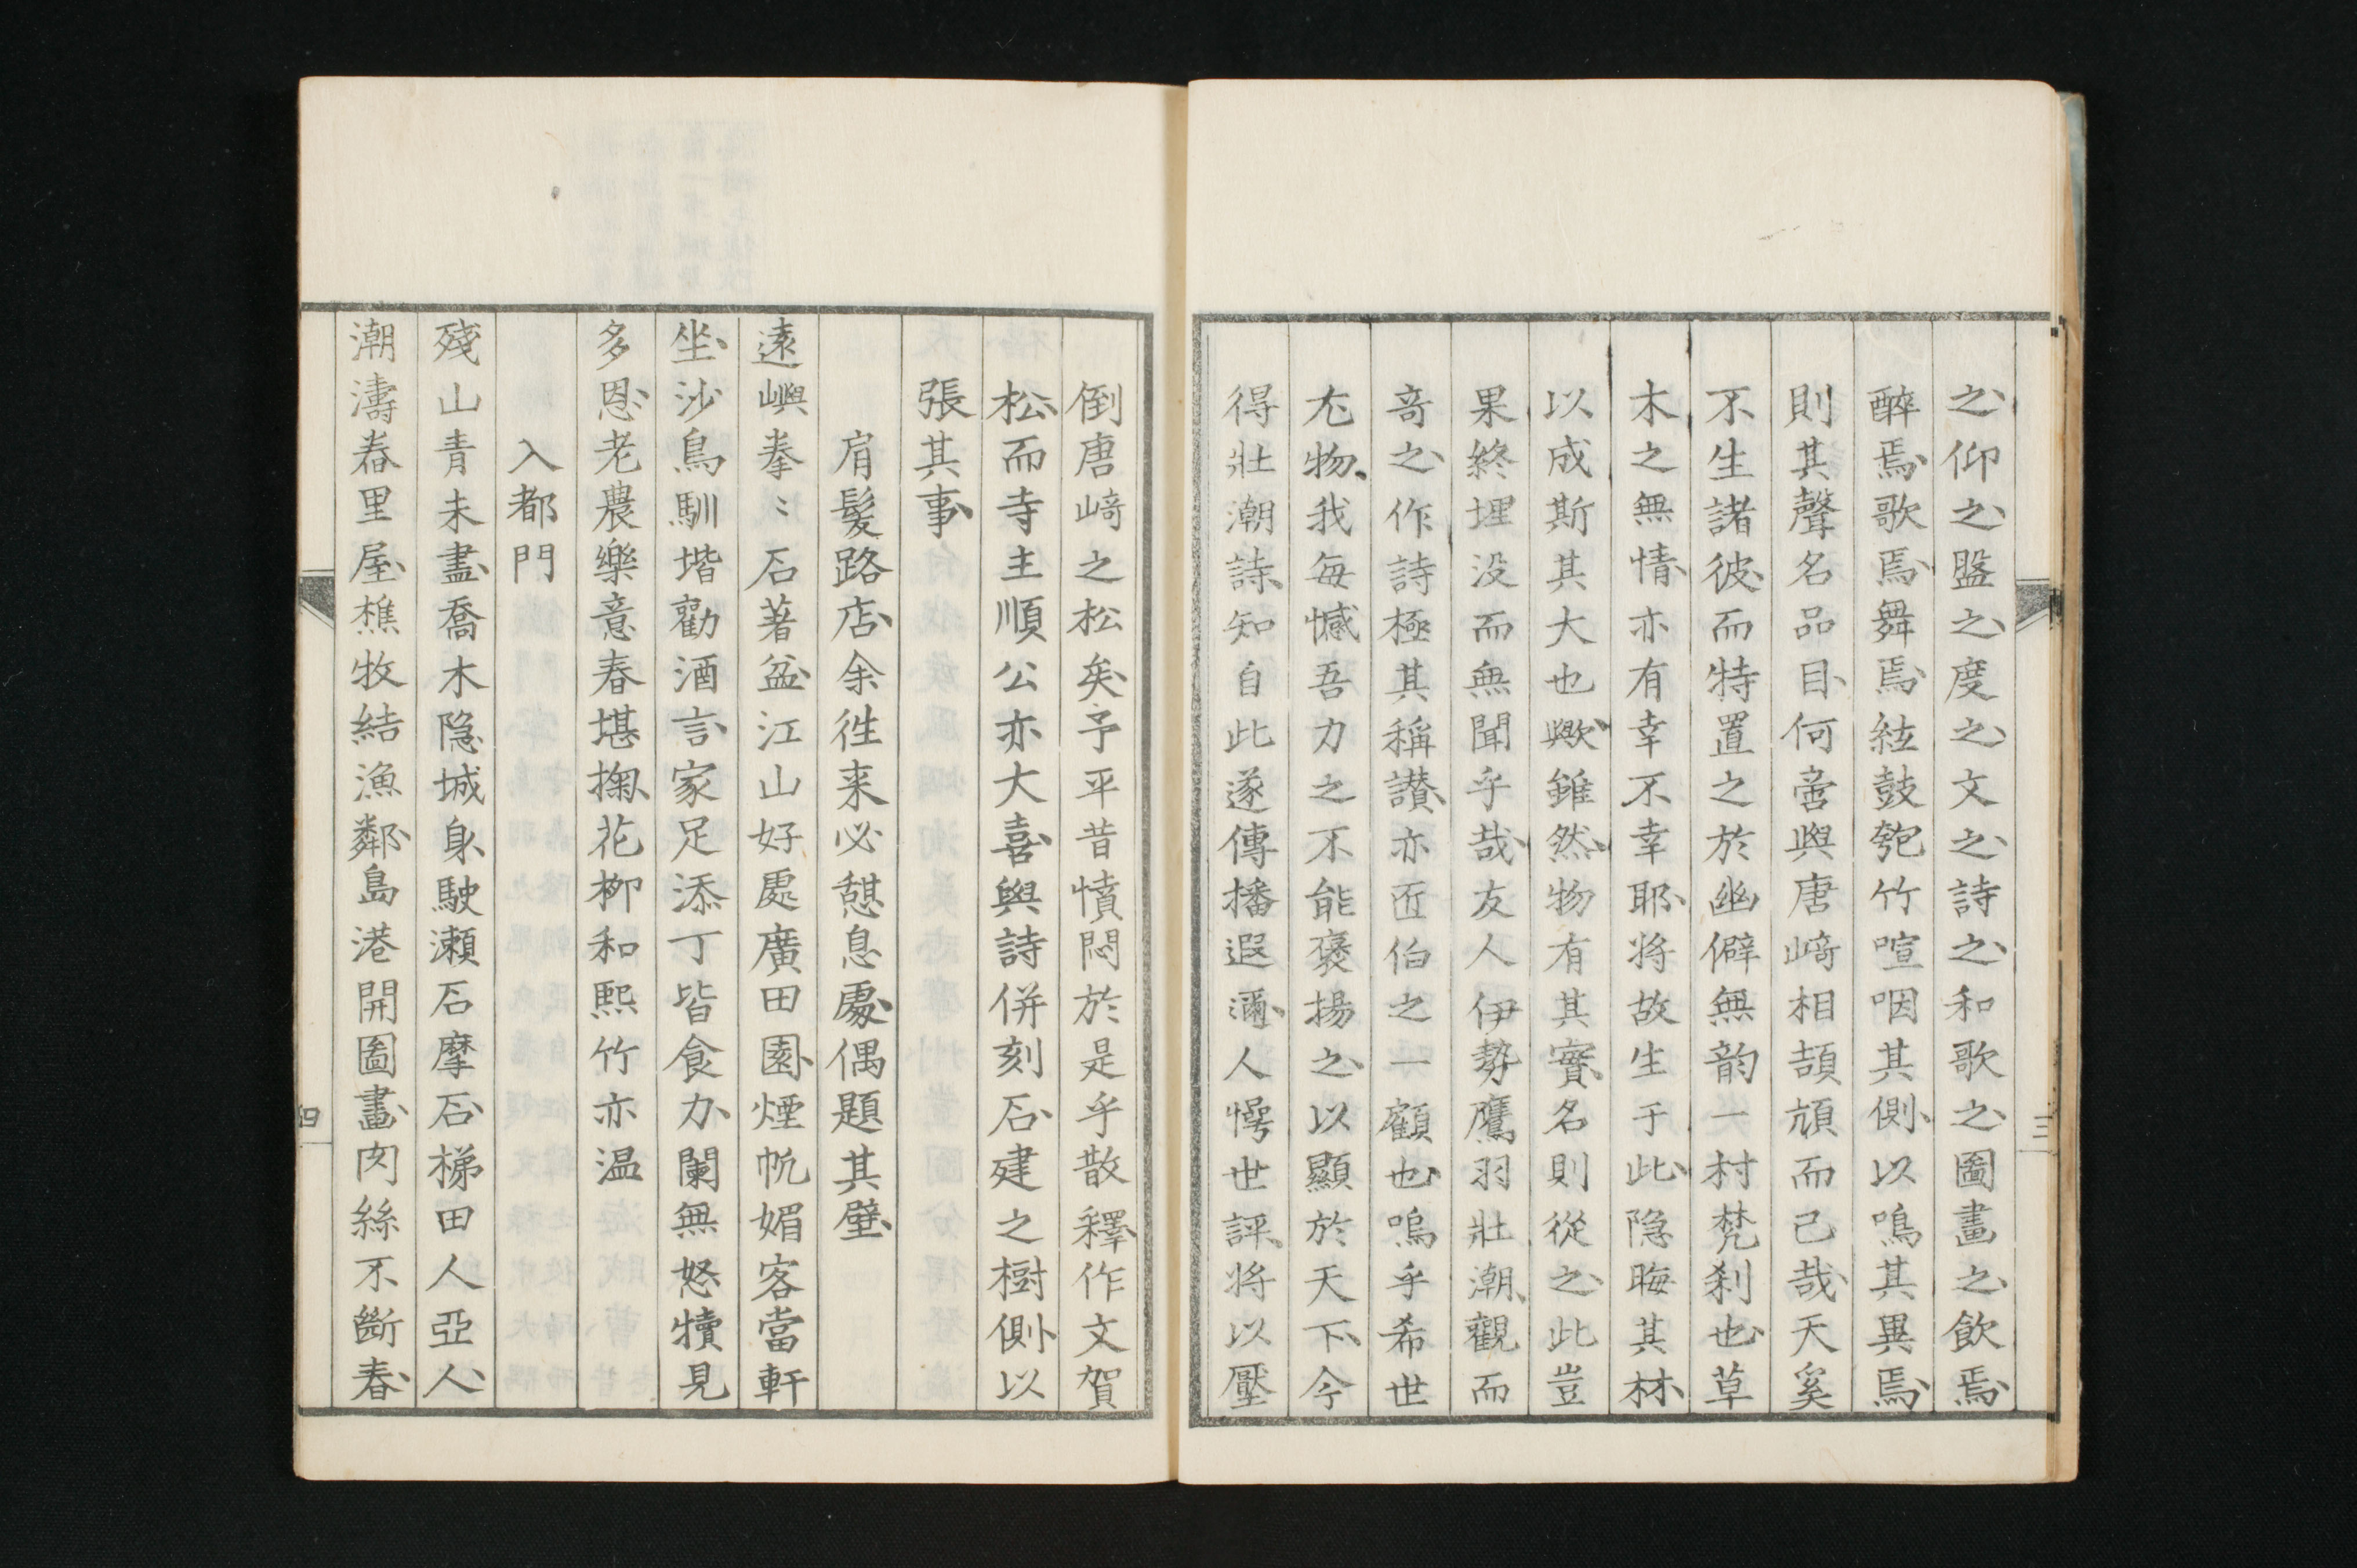 之、仰之、盤之、度之、文之、詩之、和歌之、圖畫之、飲焉、
醉焉、歌焉、舞焉、絃鼓匏竹喧咽其側、以鳴其異焉、
則其聲名品目、何啻與唐﨑相頡頏而已哉、天奚
不生諸彼、而特置之於幽僻無韵一村梵刹也、草
木之無情、亦有幸不幸耶、将故生于此、隐晦其材、
以成斯其大也歟、雖然、物有其實、名則從之、此豈
果終埋没而無聞乎哉、友人伊勢鷹羽壯潮、觀而
竒之、作詩極其稱讃、亦匠伯之一顧也、嗚乎希世
尤物、我毎憾吾力之不能褒揚之、以顯於天下、今
得壯潮詩、知自此遂傳播遐邇、人愕世評、将以壓
倒唐﨑之松矣、予平昔憤悶於是乎散釋、作文賀
松、而寺主順公亦大喜、與詩併刻石、建之樹側、以
張其事、
肩髮路店、余徃来必憩息處、偶題其壁、
遠嶼拳〻石著盆、江山好處廣田園、煙帆媚客當軒
坐、沙鳥馴堦勸酒言、家足添丁皆食力、闌無怒犢見
多恩、老農樂意春堪掬、花栁和熙竹亦温
入都門
殘山青未盡、喬木隐城身駛瀬石摩石、梯田人亞人、
潮濤春里屋、樵牧結漁鄰、島港開圖畫、肉絲不斷春、
三
四